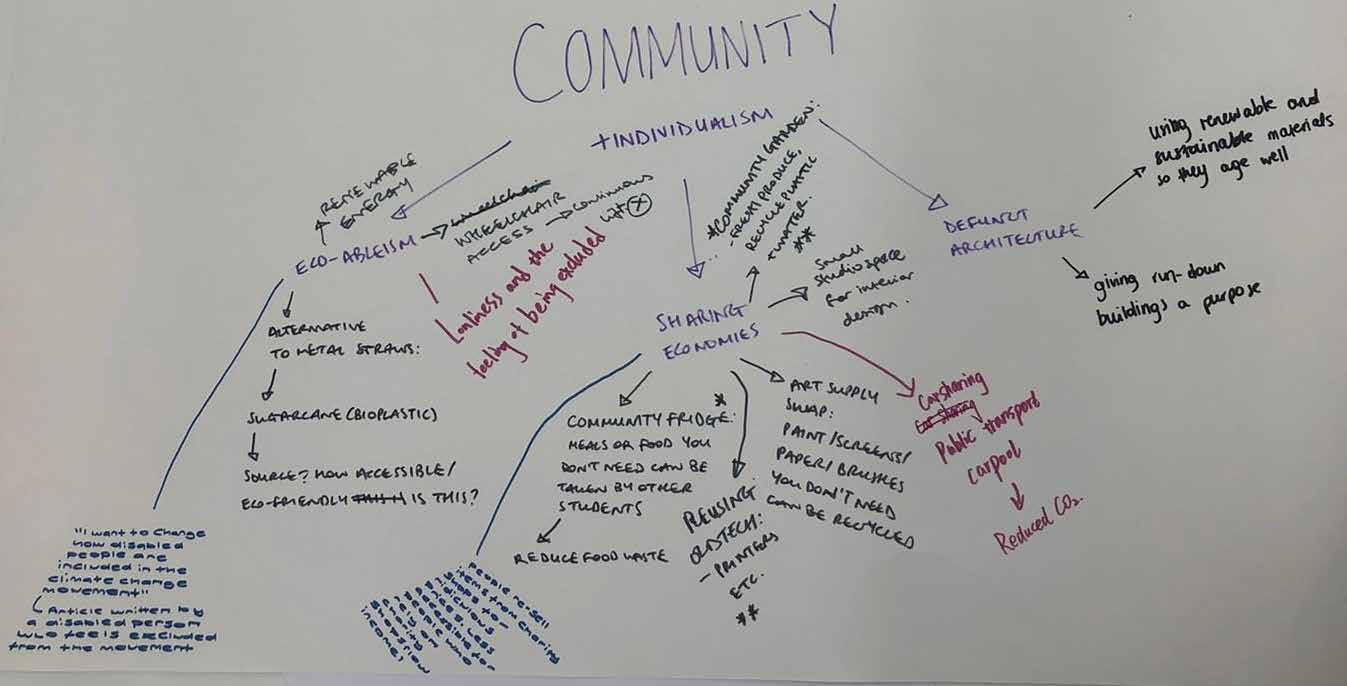 COMMUNITY
+INDIVIDUALISM
RENEWABLE
ENERGY
ECO-ABLEISM
wheelchair
WHEELCHAIR
ACCESS → continuous
lift
Lonliness and the
feeling of being excluded
ALTERNATIVE
TO METAL STRAWS:
SUGARCANE (BIOPLASTIC)
SOURCE? HOW ACCESSIBLE/
ECO-FRIENDLY THIS IS THIS?
"I want to change
how disabled
people are
included in the
climate change
movement"
Article written by
a disabled person
who feels excluded
from the movement
SHARING
ECONOMIES
*COMMUNITY GARDEN:
-FRESH PRODUCE,
RECYCLE PLASTIC
+ WATER.
**
Small
studio space
for interior
design.
COMMUNITY FRIDGE: *
MEALS OR FOOD YOU
DON'T NEED CAN BE
TAKEN BY OTHER
STUDENTS
REDUCE FOOD WASTE
People re-sell
items from charity
shops for
ridiculous
prices, less
accessible for
people who
rely on
charity
shops (low
income)
REUSING
OLD TECH:
- PRINTERS
ETC.
**
ART SUPPLY
SWAP:
PAINT/SCREENS/
PAPER/BRUSHES
YOU DON'T NEED
CAN BE RECYCLED
Carsharing
Car sharing
Public transport
carpool
Reduced CO₂.
DEFUNCT
ARCHITECTURE
using renewable and
sustainable materials
so they age well
giving run-down
buildings a purpose